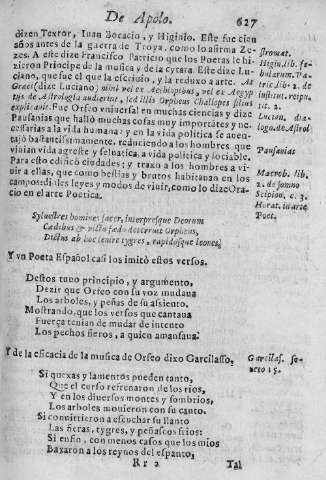 De Apolo. 627
dizen Textor, Iuan Bocacio, y Higinio. Este fue cien
años antes de la guerra de Troya, como lo afirma Ze-
zes. A este dize Francisco Patricio que los Poetas le hi-
zieron Principe de la musica y de la cytara. Este dize Lu-
ciano, que fue el que la escriuio, y la reduxo a arte.
Graeci (dize Luciano) nihil vel ex Aethiopibus, vel ex Aegyp
tijs de Astrologia audierunt, sed illis Orpheus Calliopes filius
explicuit. Fue Orfeo vniuersal en muchas ciencias y dize
Pausanias que halló muchas cosas muy importãtes y ne-
cessarias a la vida humana: y en la vida politica se auen-
tajó bastantissimamente, reduciendo a los hombres que
viuian vida agreste y seluatica, a vida politica y sociable.
Para esto edificó ciudades; y traxo a los hombres a vi-
uir a ellas, que como bestias y brutos habitauan en los
campos: dioles leyes y modos de viuir, como lo dize Ora-
cio en el arte Poetica.
Syluestres homines sacer, interpresque Deorum
Caedibus & victu foedo deterruit Orpheus,
Dictus ab hoc lenire tygres, rapidosque leones.
Y vn Poeta Español casi los imitò estos versos.
Destos tuuo principio, y argumento,
Dezir que Orfeo con su voz mudaua
Los arboles, y peñas de su assiento.
Mostrando, que los versos que cantaua
Fuerça tenian de mudar de intento
Los pechos fieros, a quien amansaua.
Y de la eficacia de la musica de Orfeo dixo Garcilasso,
Si quexas y lamentos pueden tanto,
Que el curso refrenaron de los rios,
Y en los diuersos montes y sombrios,
Los arboles mouieron con su canto.
Si conuirtieron a escuchar su llanto
Las fieras, tygres, y peñascos frios:
Si enfin, con menos casos que los mios
Baxaron a los reynos del espanto,
Rr 2 Tal
Higin. lib. fa-
bularum. Pa-
tric. lib. 2. de
institut. reipu.
tit. 2.
Lucian. dia-
logo. de Astrol.
Pausanias
Macrob. lib.
2. de somno
Scipion. c. 3.
Horat. in arte
Poet.
Garcilas. so-
neto 15.